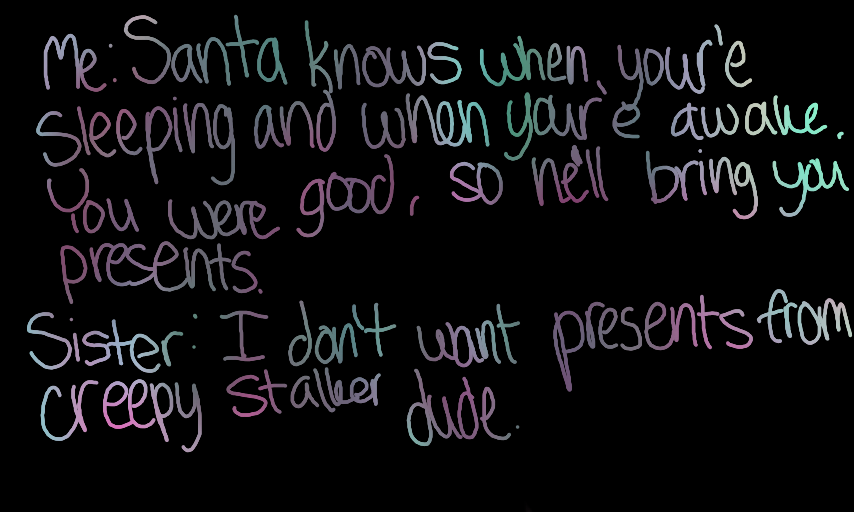 Me: Santa knows when your'e
sleeping and when your'e awake.
You were good, so he'll bring you
presents.
Sister: I don't want presents from
creepy stalker dude.